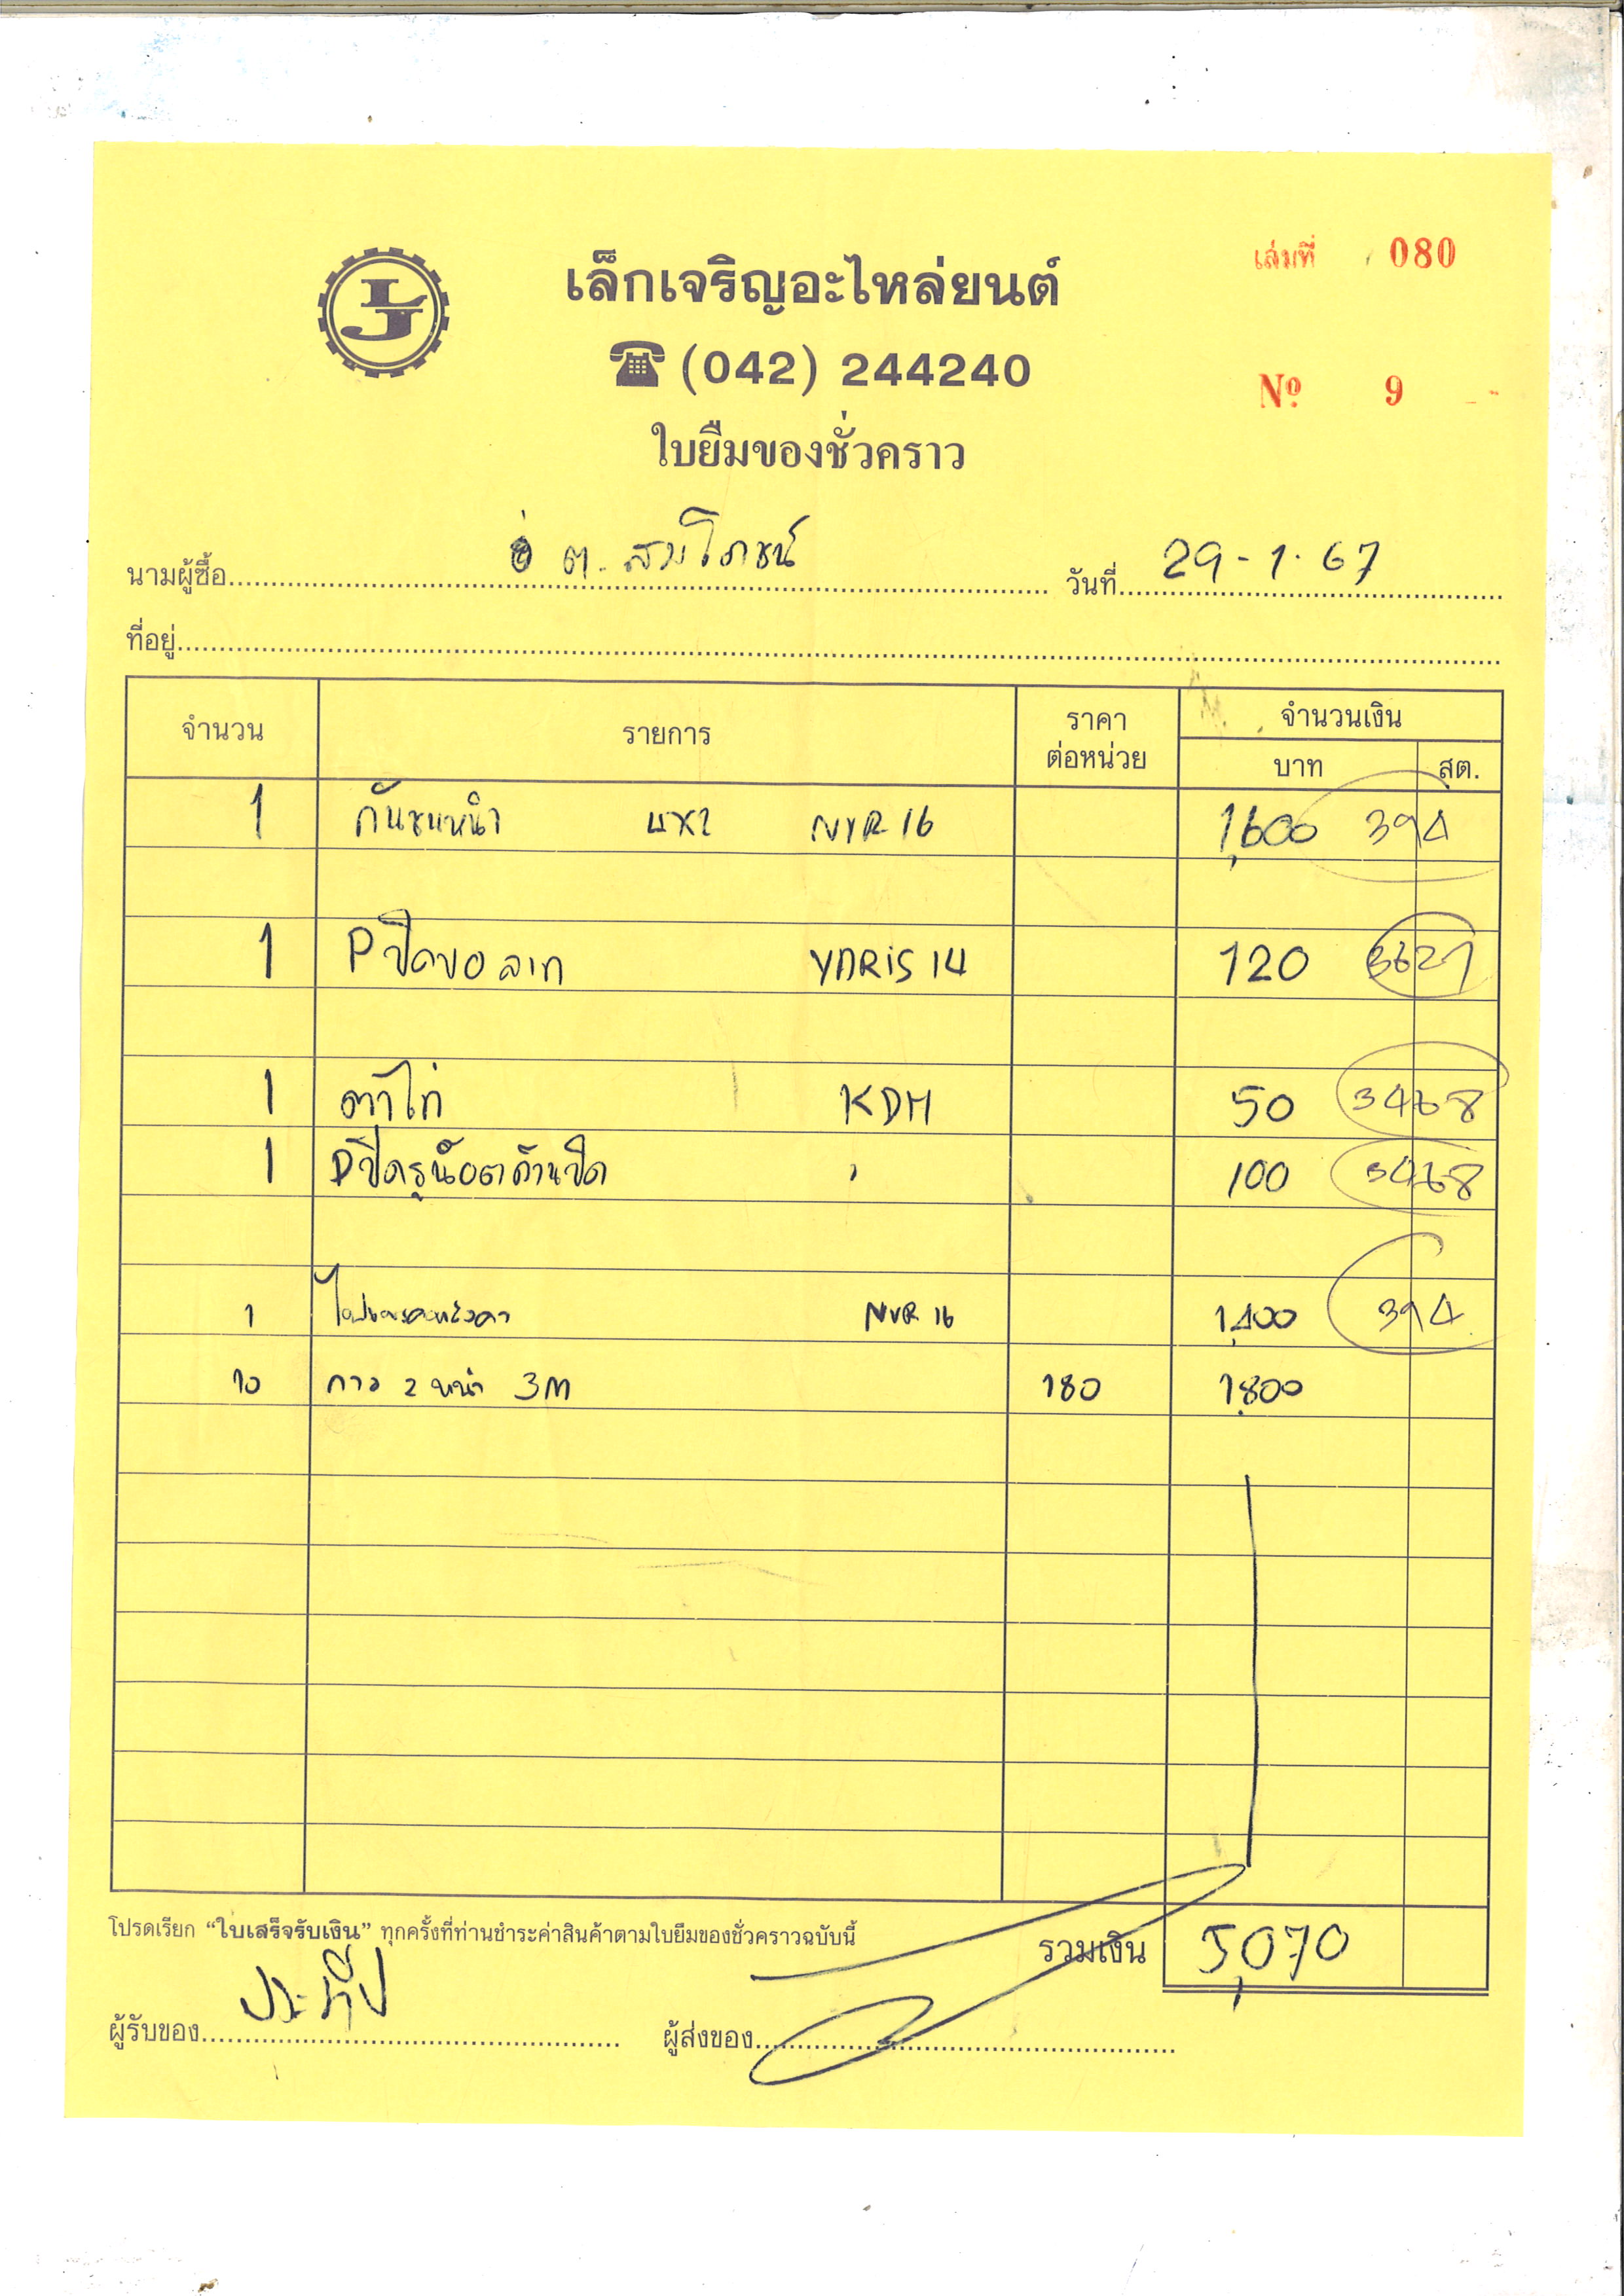 LJ
เล็กเจริญอะไหล่ยนต์
เล่มที่ 080
(042) 244240
Nº 9
ใบยืมของชั่วคราว
นามผู้ซื้อ อู่ ต. สมโภชน์ วันที่ 29-1-67
ที่อยู่
จำนวน รายการ ราคาต่อหน่วย จำนวนเงิน
บาท สต.
1 กันชนหน้า 4x2 NVR 16 1,600 394
1 Pปิดขอลาก YARiS 14 120 3627
1 ตาไก่ KDH 50 3468
1 Pปิดรูน็อตก้านปัด " 100 3468
1 NVR 16 1,400 394
10 กาว 2 หน้า 3M 180 1,800
โปรดเรียก “ใบเสร็จรับเงิน” ทุกครั้งที่ท่านชำระค่าสินค้าตามใบยืมของชั่วคราวฉบับนี้
รวมเงิน 5,070
ผู้รับของ ประทีป ผู้ส่งของ